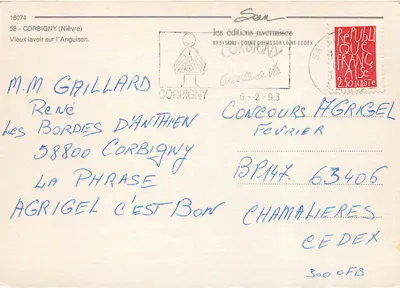 16074
58 - CORBIGNY (Nièvre)
Vieux lavoir sur l'Anguison.
les éditions nivernaises
CORBIGNY
CORBIGNY
6-2-93
RÉPU
BLI
QUE
FRANÇ
AISE
2,50 LA POSTE
M.M GAILLARD
René
Les BORDES D'ANTHIEN
58800 CORBIGNY
LA PHRASE
AGRIGEL C'EST BON
CONCOURS AGRIGEL
FEVRIER
BP147. 63406
CHAMALIERES
CEDEX